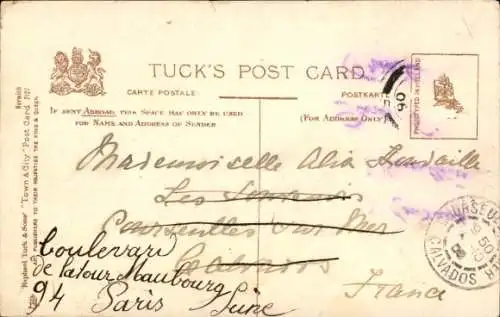 TUCK'S POST CARD
CARTE POSTALE
POSTKARTE
IF SENT ABROAD, THIS SPACE MAY ONLY BE USED
FOR NAME AND ADDRESS OF SENDER
(FOR ADDRESS ONLY)
PHOTOTYPED IN HOLLAND
Raphael Tuck & Sons' "Town & City" Post Card
ART PUBLISHERS TO THEIR MAJESTIES THE KING & QUEEN
Mademoiselle
Les
Courseulles sur Mer
Calvados
France
Boulevard
de Latour Maubourg
94 Paris Seine
CALVADOS